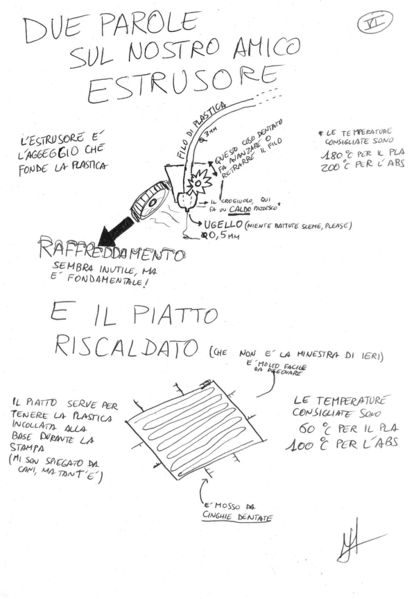 DUE PAROLE
SUL NOSTRO AMICO
ESTRUSORE
VI
L'ESTRUSORE E'
L'AGGEGGIO CHE
FONDE LA PLASTICA
FILO DI PLASTICA
Ø 3 MM
QUESTO COSO DENTATO
FA AVANZARE O
RETRARRE IL FILO
* LE TEMPERATURE
CONSIGLIATE SONO
180°C PER IL PLA
200°C PER L'ABS
IL CROGIUOLO, QUI
FA UN CALDO PAZZESCO*
UGELLO (NIENTE BATTUTE SCEME, PLEASE)
Ø 0,5 MM
RAFFREDDAMENTO
SEMBRA INUTILE, MA
E' FONDAMENTALE!
E IL PIATTO
RISCALDATO (CHE NON E' LA MINESTRA DI IERI)
E' MOLTO FACILE
DA DISEGNARE
IL PIATTO SERVE PER
TENERE LA PLASTICA
INCOLLATA ALLA
BASE DURANTE LA
STAMPA
(MI SON SPIEGATO DA
CANI, MA TANT'E')
LE TEMPERATURE
CONSIGLIATE SONO
60°C PER IL PLA
100°C PER L'ABS
E' MOSSO DA
CINGHIE DENTATE